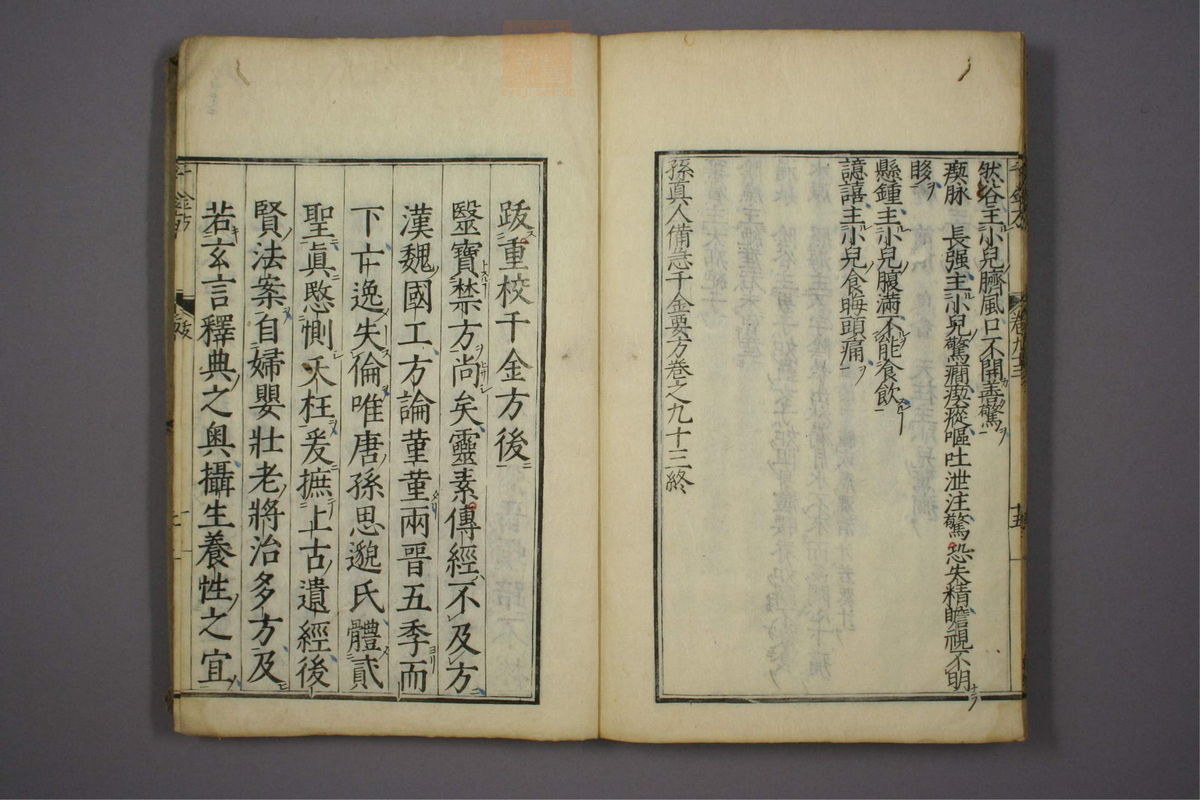 然谷主小兒臍風口不開善驚
瘈脉　長强主小兒驚癇瘈瘲嘔吐泄注驚恐失精瞻視不明
眵
懸鍾主小兒腹滿不能食飲
譩譆主小兒食晦頭痛
孫真人備急千金要方卷之九十三終
跋重校千金方後
毉寶禁方尚矣靈素傳經不及方
漢魏國工方論蕫蕫兩晉五季而
下亡逸失倫唯唐孫思邈氏體貳
聖眞愍惻夭枉爰摭上古遺經後
賢法案自婦嬰壯老將治多方及
若玄言釋典之奥攝生養性之宜